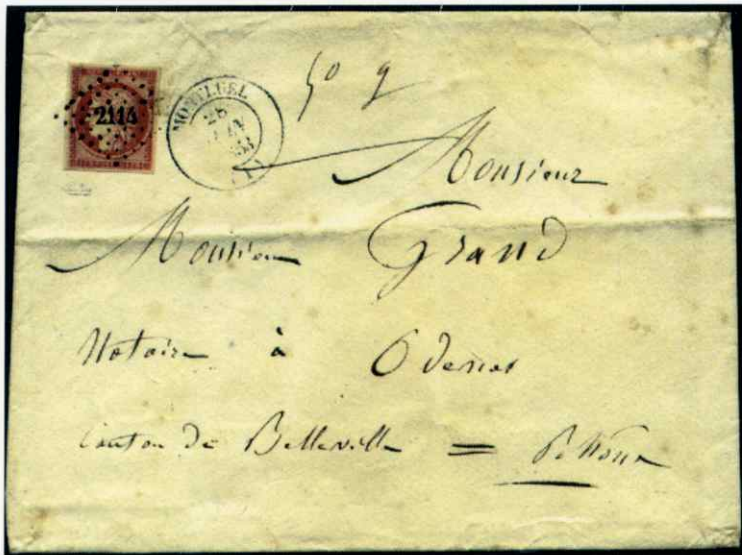 2114
MONTLUEL
28
53
(1)
50 g
Monsieur
Monsieur Grand
Notaire à Odenas
Canton de Belleville =